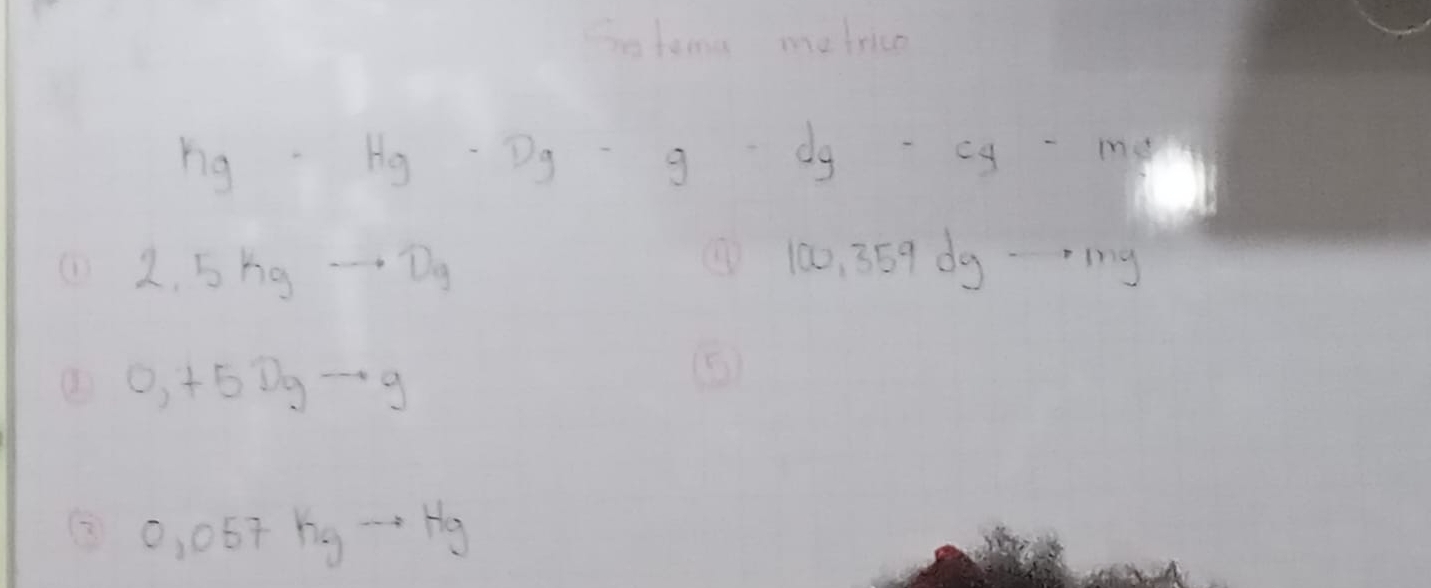 Sistema metrico
Kg - Hg - Dg - g - dg - cg - mg
① 2,5 Kg → Dg
② 0,75 Dg → g
③ 0,067 Kg → Hg
④ 100,359 dg → mg
⑤